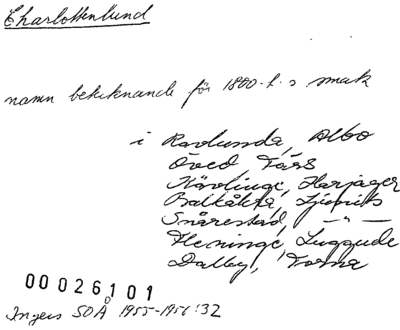 Charlottenlund
namn betecknande för 1800-t.s smak
i Ravlunda, Albo
Öved Färs
Kävlinge, Harjager
Balkåkra, Ljunits
Snårestad, — " —
Fleninge, Luggude
Dalby, Torna
00026101
Ingers SOÅ 1955-1956:32